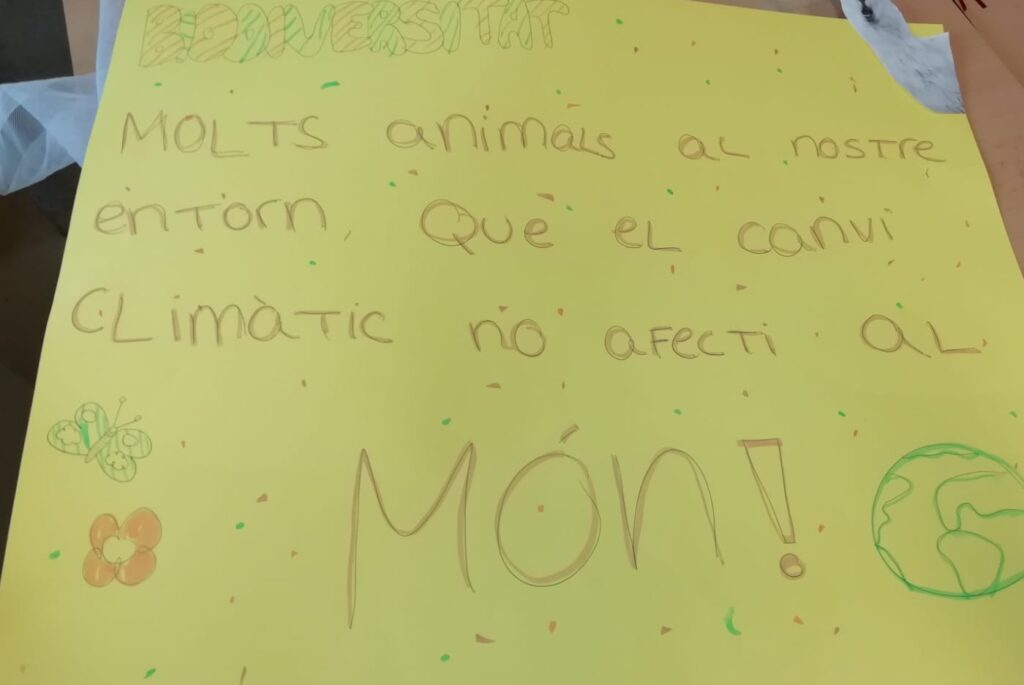 BIODIVERSITAT
MOLTS animals al nostre
entorn, Que el canvi
Climàtic no afecti al
MÓn!